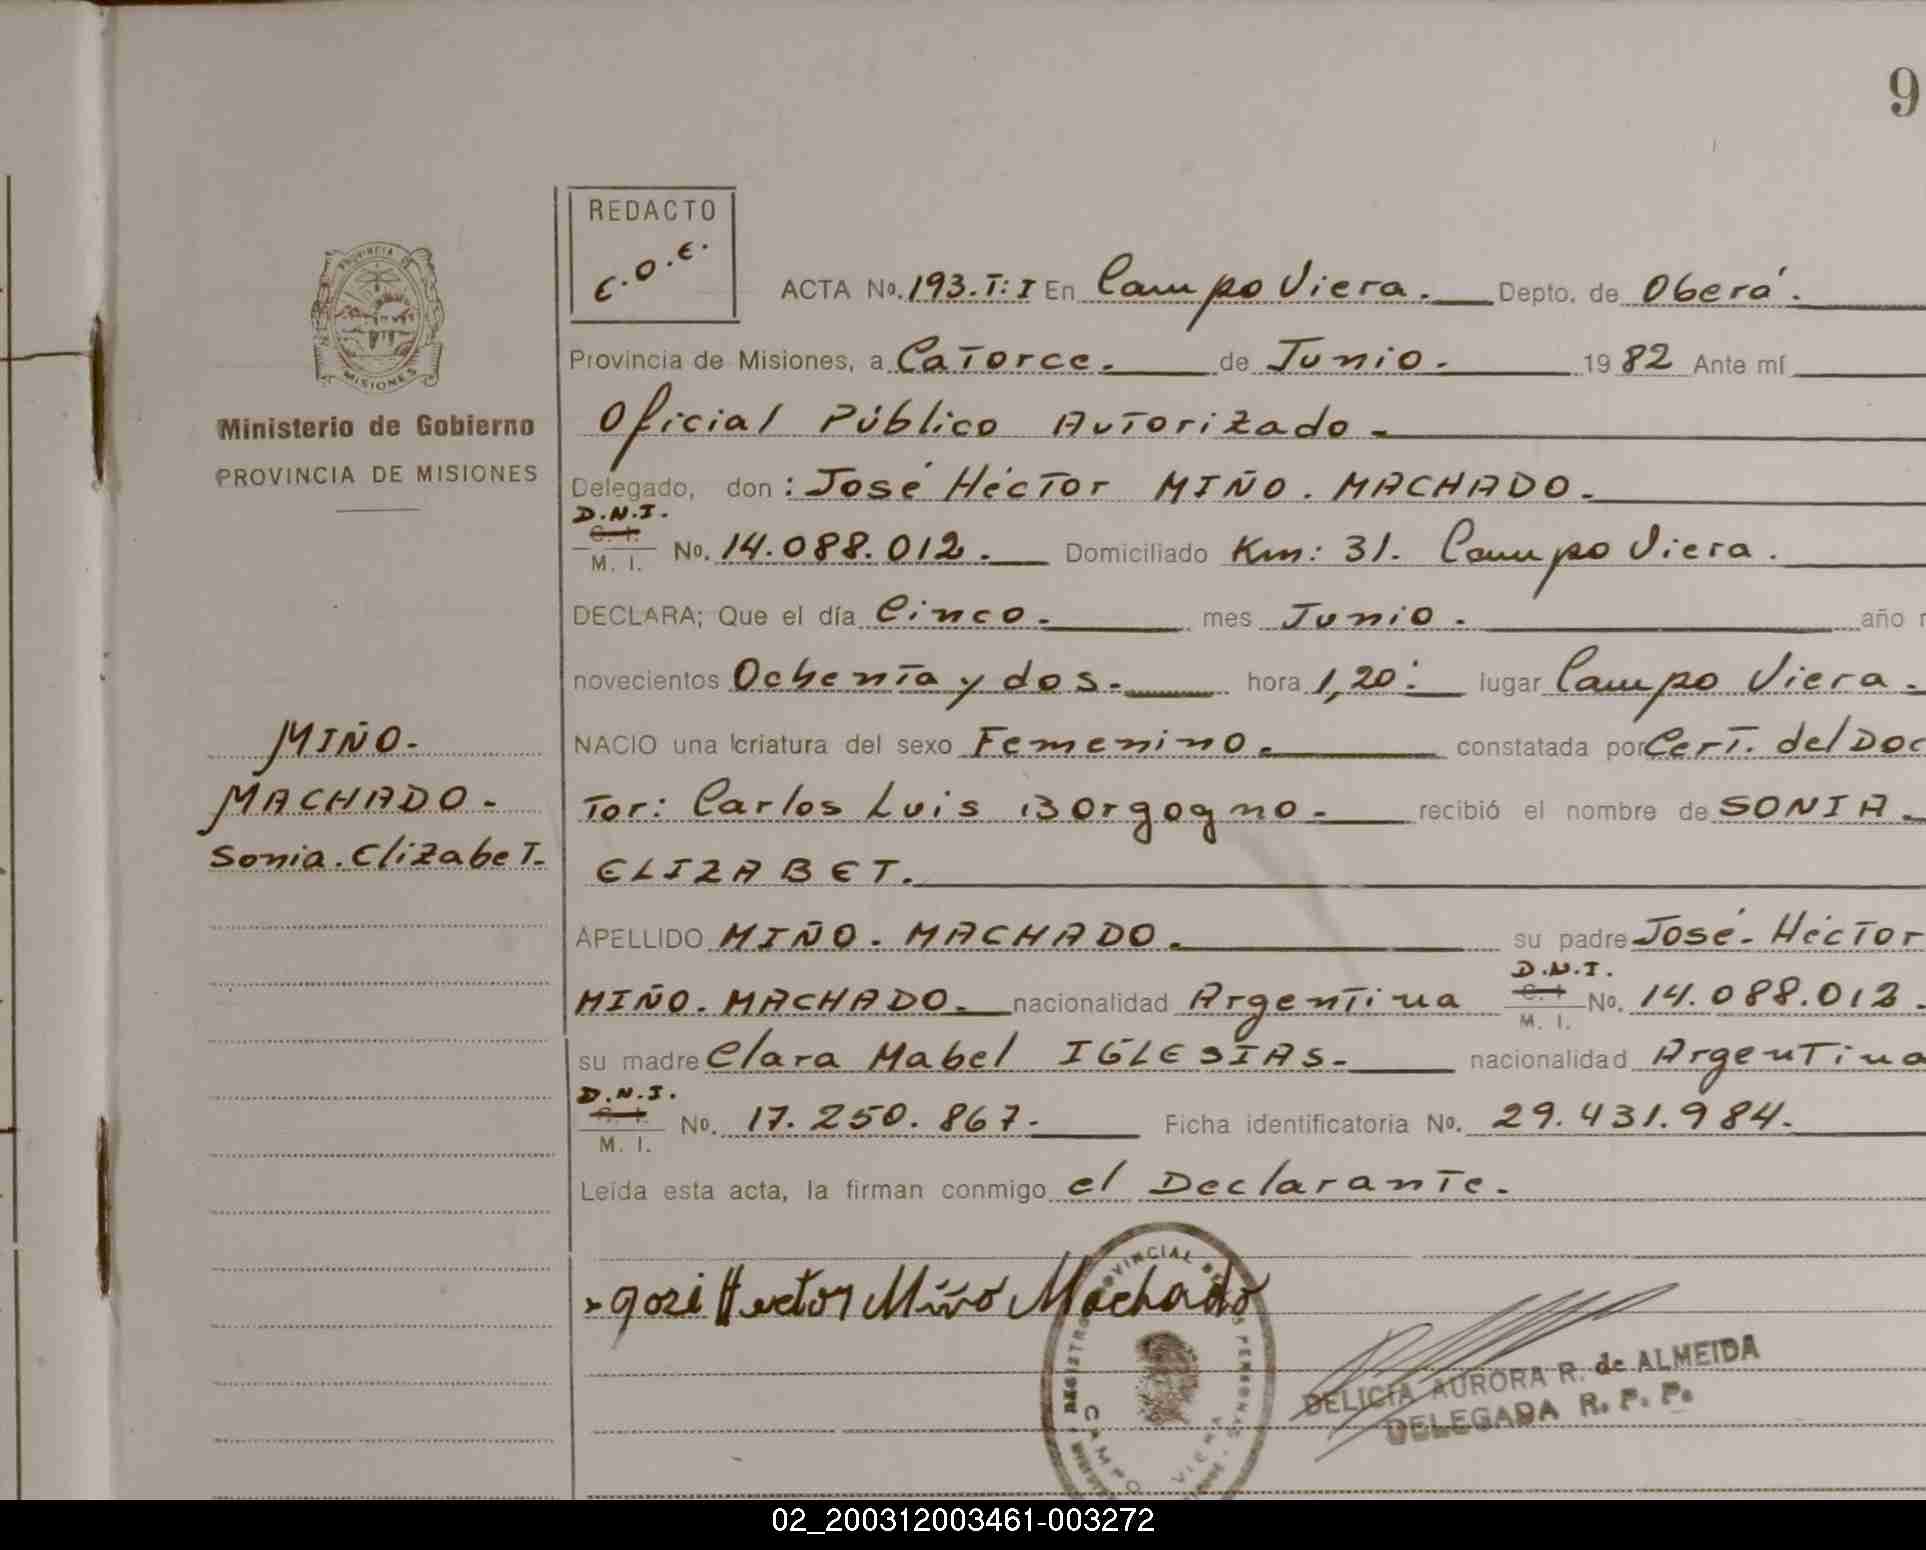 9
PROVINCIA DE
MISIONES
Ministerio de Gobierno
PROVINCIA DE MISIONES
REDACTO
C.O.E.
ACTA No. 193.T:I En Campo Viera. Depto. de Oberá.
Provincia de Misiones, a Catorce. de Junio. 1982 Ante mí
Oficial Público Autorizado.
Delegado, don: José Héctor MIÑO. MACHADO.
D.N.I.
C. I.
M. I. No. 14.088.012. Domiciliado Km: 31. Campo Viera.
DECLARA; Que el día Cinco. mes Junio. año
novecientos Ochenta y dos. hora 1,20: lugar Campo Viera.
MIÑO.
NACIO una criatura del sexo Femenino. constatada por Cert. del Doc
MACHADO.
Tor: Carlos Luis Borgogno. recibió el nombre de SONIA.
Sonia. Elizabet.
ELIZABET.
APELLIDO MIÑO. MACHADO. su padre José. Héctor
MIÑO. MACHADO. nacionalidad Argentina D.N.I. C. I M. I. No. 14.088.012.
su madre Clara Mabel IGLESIAS. nacionalidad Argentina
D.N.I.
C. I.
M. I. No. 17.250.867. Ficha identificatoria No. 29.431.984.
Leída esta acta, la firman conmigo el Declarante.
José Hector Miño Machado
REGISTRO PROVINCIAL DE LAS PERSONAS
CAMPO VIERA
DELICIA AURORA R. de ALMEIDA
DELEGADA R. P. P.
02_200312003461-003272